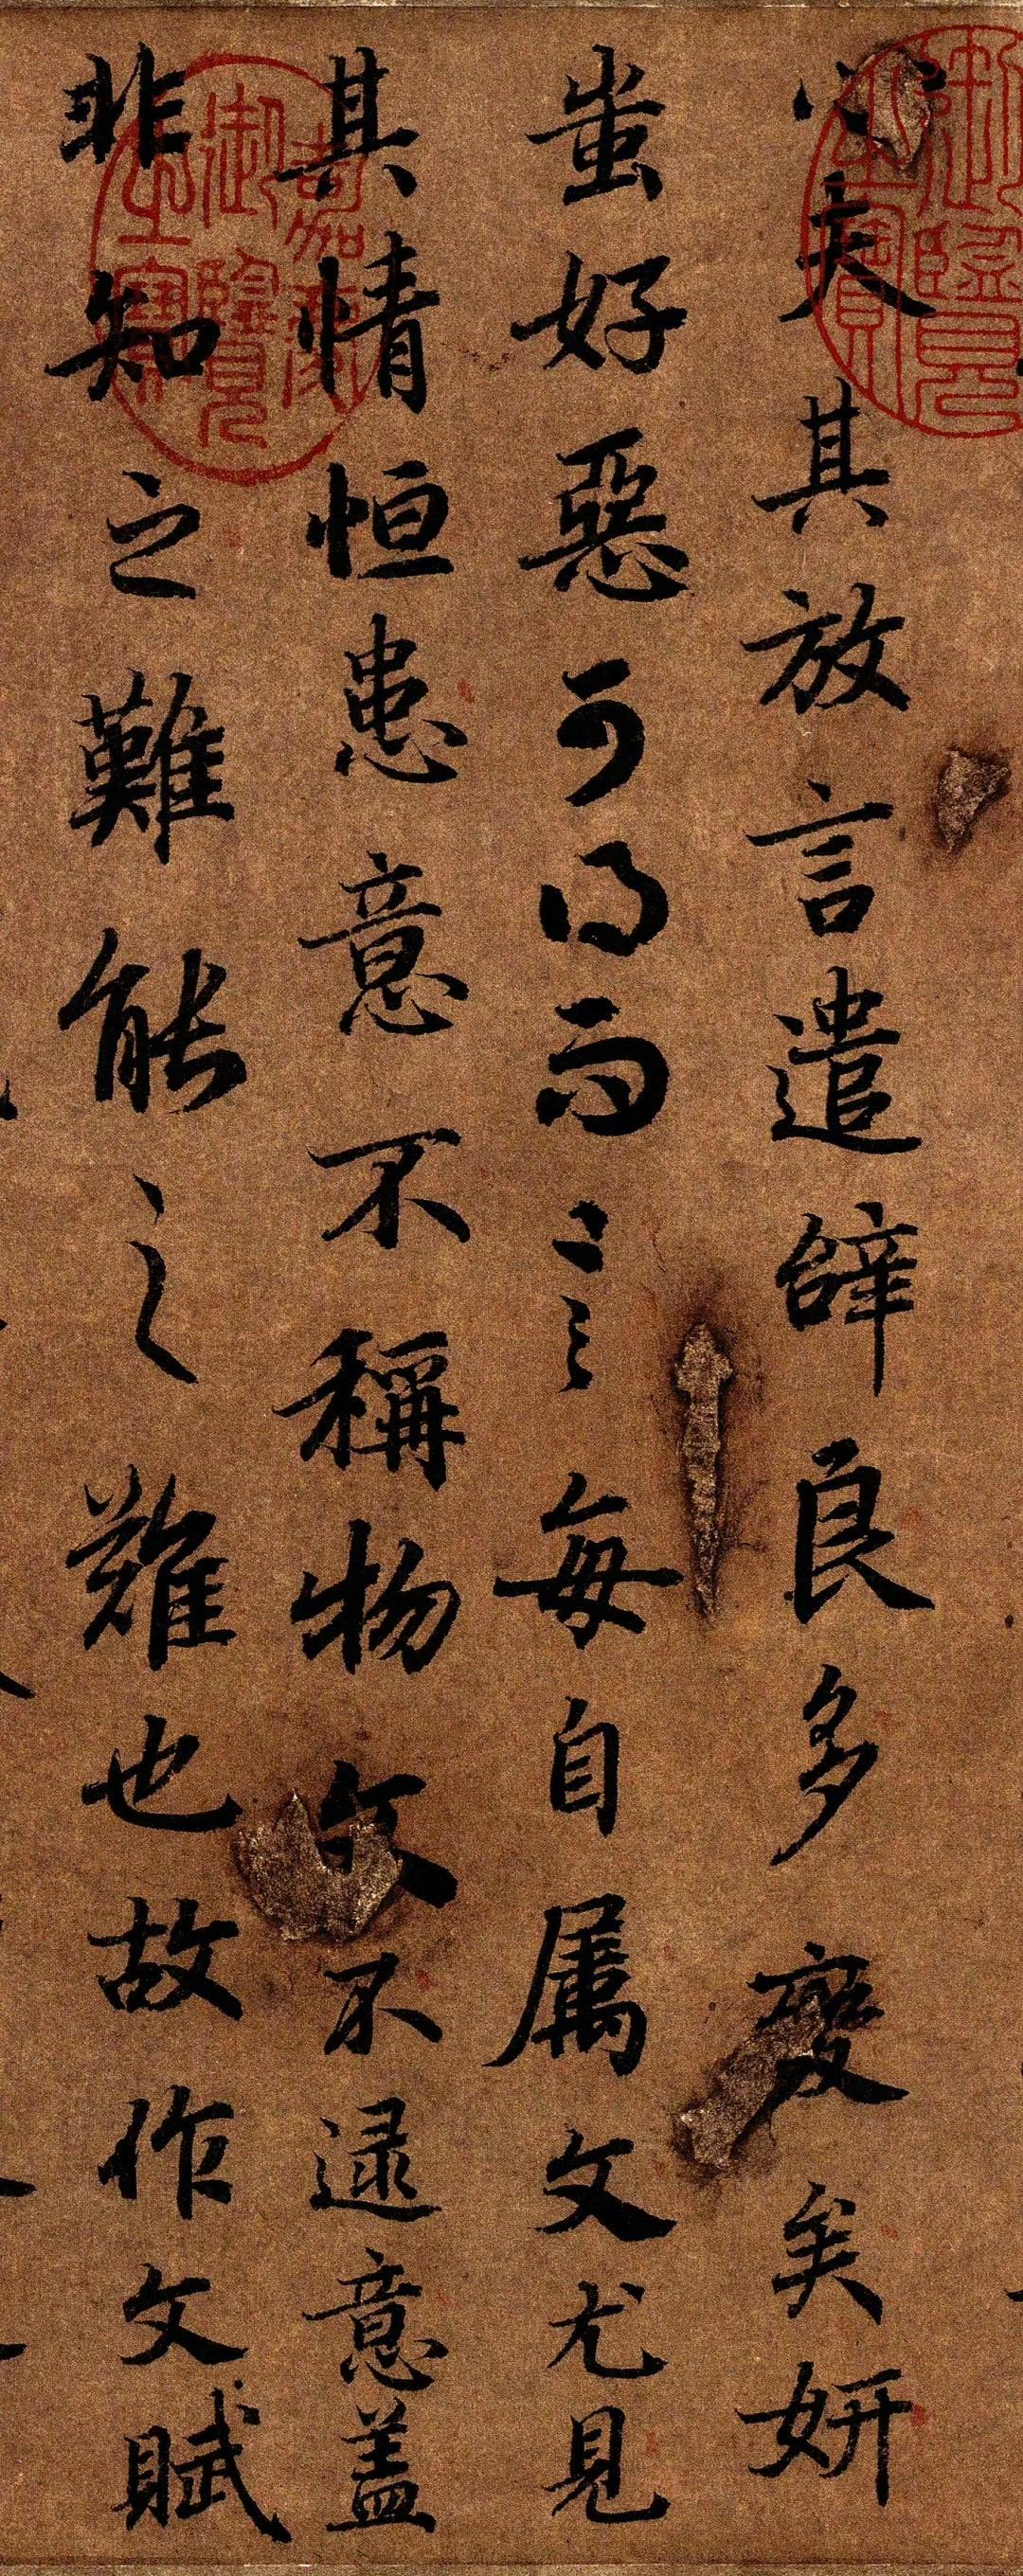 御覽之寶
心夫其放言遣辭良多變矣妍
蚩好惡可得而言每自属文尤見
其情恒患意不稱物文不逮意盖
非知之難能之難也故作文賦
嘉慶御覽之寶